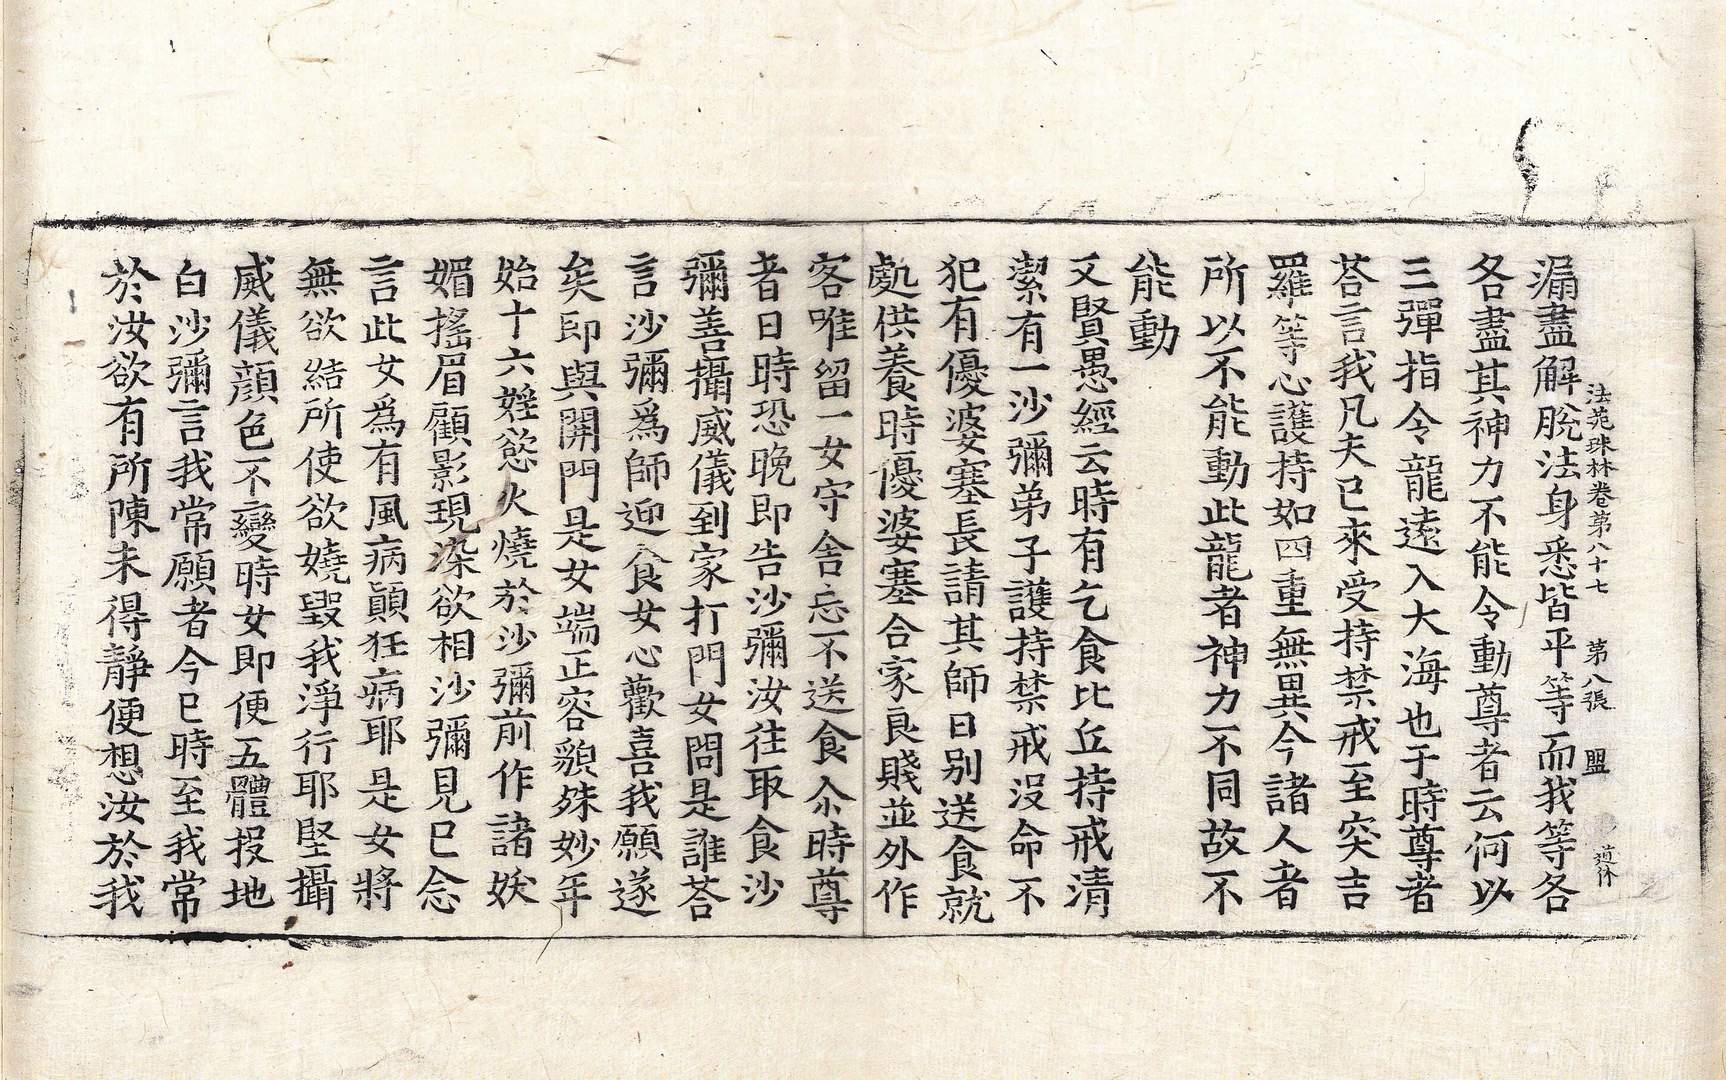 法苑珠林卷第八十七　第八張　盟　道休
漏盡解脫法身悉皆平等而我等各
各盡其神力不能令動尊者云何以
三彈指令龍遠入大海也于時尊者
荅言我凡夫已來受持禁戒至突吉
羅等心護持如四重無異今諸人者
所以不能動此龍者神力不同故不
能動
又賢愚經云時有乞食比丘持戒清
潔有一沙彌弟子護持禁戒沒命不
犯有優婆塞長請其師日別送食就
處供養時優婆塞合家良賤並外作
客唯留一女守舍忘不送食尒時尊
者日時恐晚即告沙彌汝往取食沙
彌善攝威儀到家打門女問是誰荅
言沙彌為師迎食女心歡喜我願遂
矣即與開門是女端正容貌殊妙年
始十六婬慾火燒於沙彌前作諸妖
媚搖眉顧影現染欲相沙彌見已念
言此女為有風病顛狂病耶是女將
無欲結所使欲嬈毀我淨行耶堅攝
威儀顏色不變時女即便五體投地
白沙彌言我常願者今已時至我常
於汝欲有所陳未得靜便想汝於我